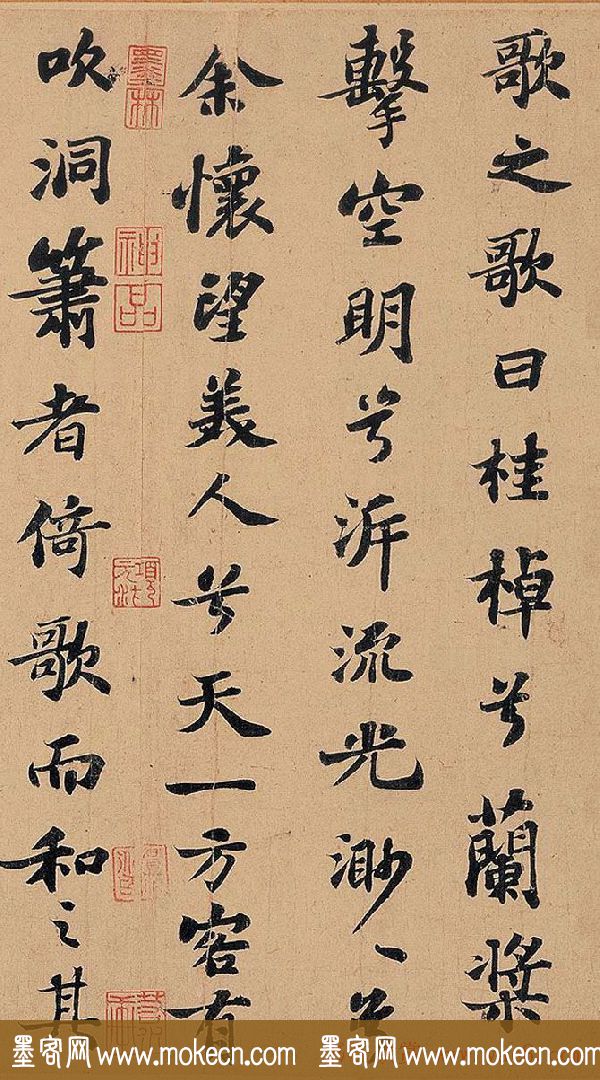 歌之歌曰桂棹兮蘭槳
擊空明兮泝流光渺〻兮
余懷望美人兮天一方客有
墨林
神品
吹洞簫者倚歌而和之其
墨客网www.mokecn.com 墨客网www.mokecn.com